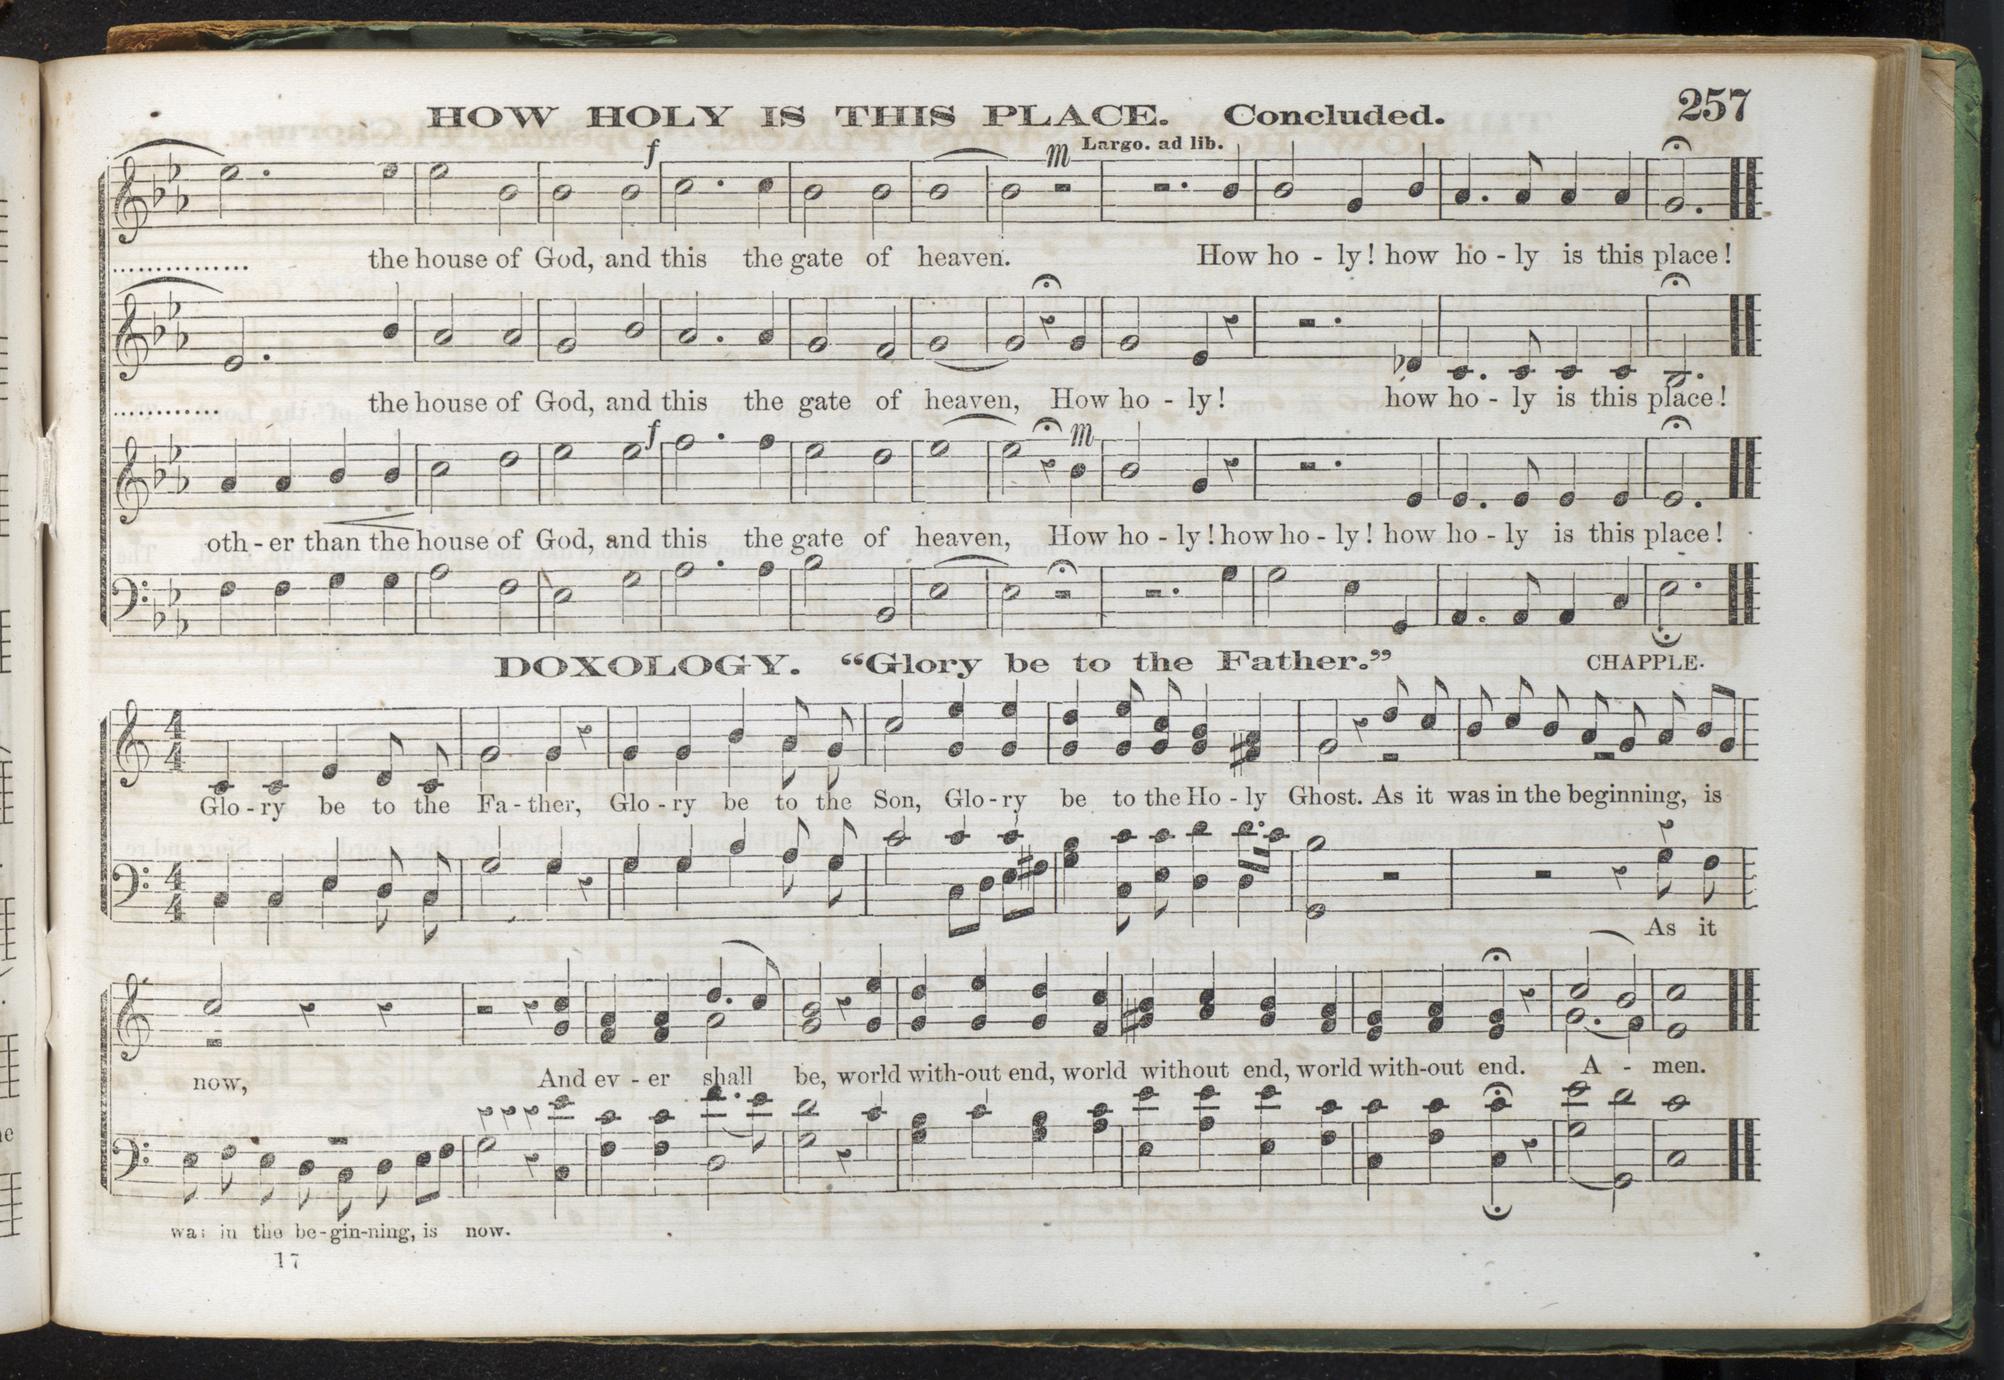 HOW HOLY IS THIS PLACE. Concluded. 257
f m Largo. ad lib.
the house of God, and this the gate of heaven. How ho - ly! how ho - ly is this place!
the house of God, and this the gate of heaven, How ho - ly! how ho - ly is this place!
f m
oth - er than the house of God, and this the gate of heaven, How ho - ly! how ho - ly! how ho - ly is this place!
DOXOLOGY. “Glory be to the Father.” CHAPPLE.
4 4
Glo - ry be to the Fa - ther, Glo - ry be to the Son, Glo - ry be to the Ho - ly Ghost. As it was in the beginning, is
4 4
As it
now, And ev - er shall be, world with-out end, world without end, world with-out end. A - men.
was in the be-gin-ning, is now.
17